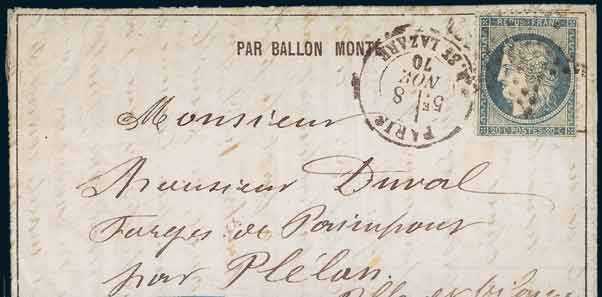 PAR BALLON MONTÉ
PARIS R. ST LAZARE
5E
8
NOV
70
REPUB. FRANC.
20 C POSTES 20 C
Monsieur
Monsieur Duval
Forges de Paimpont
par Plélan
Ille et Vilaine